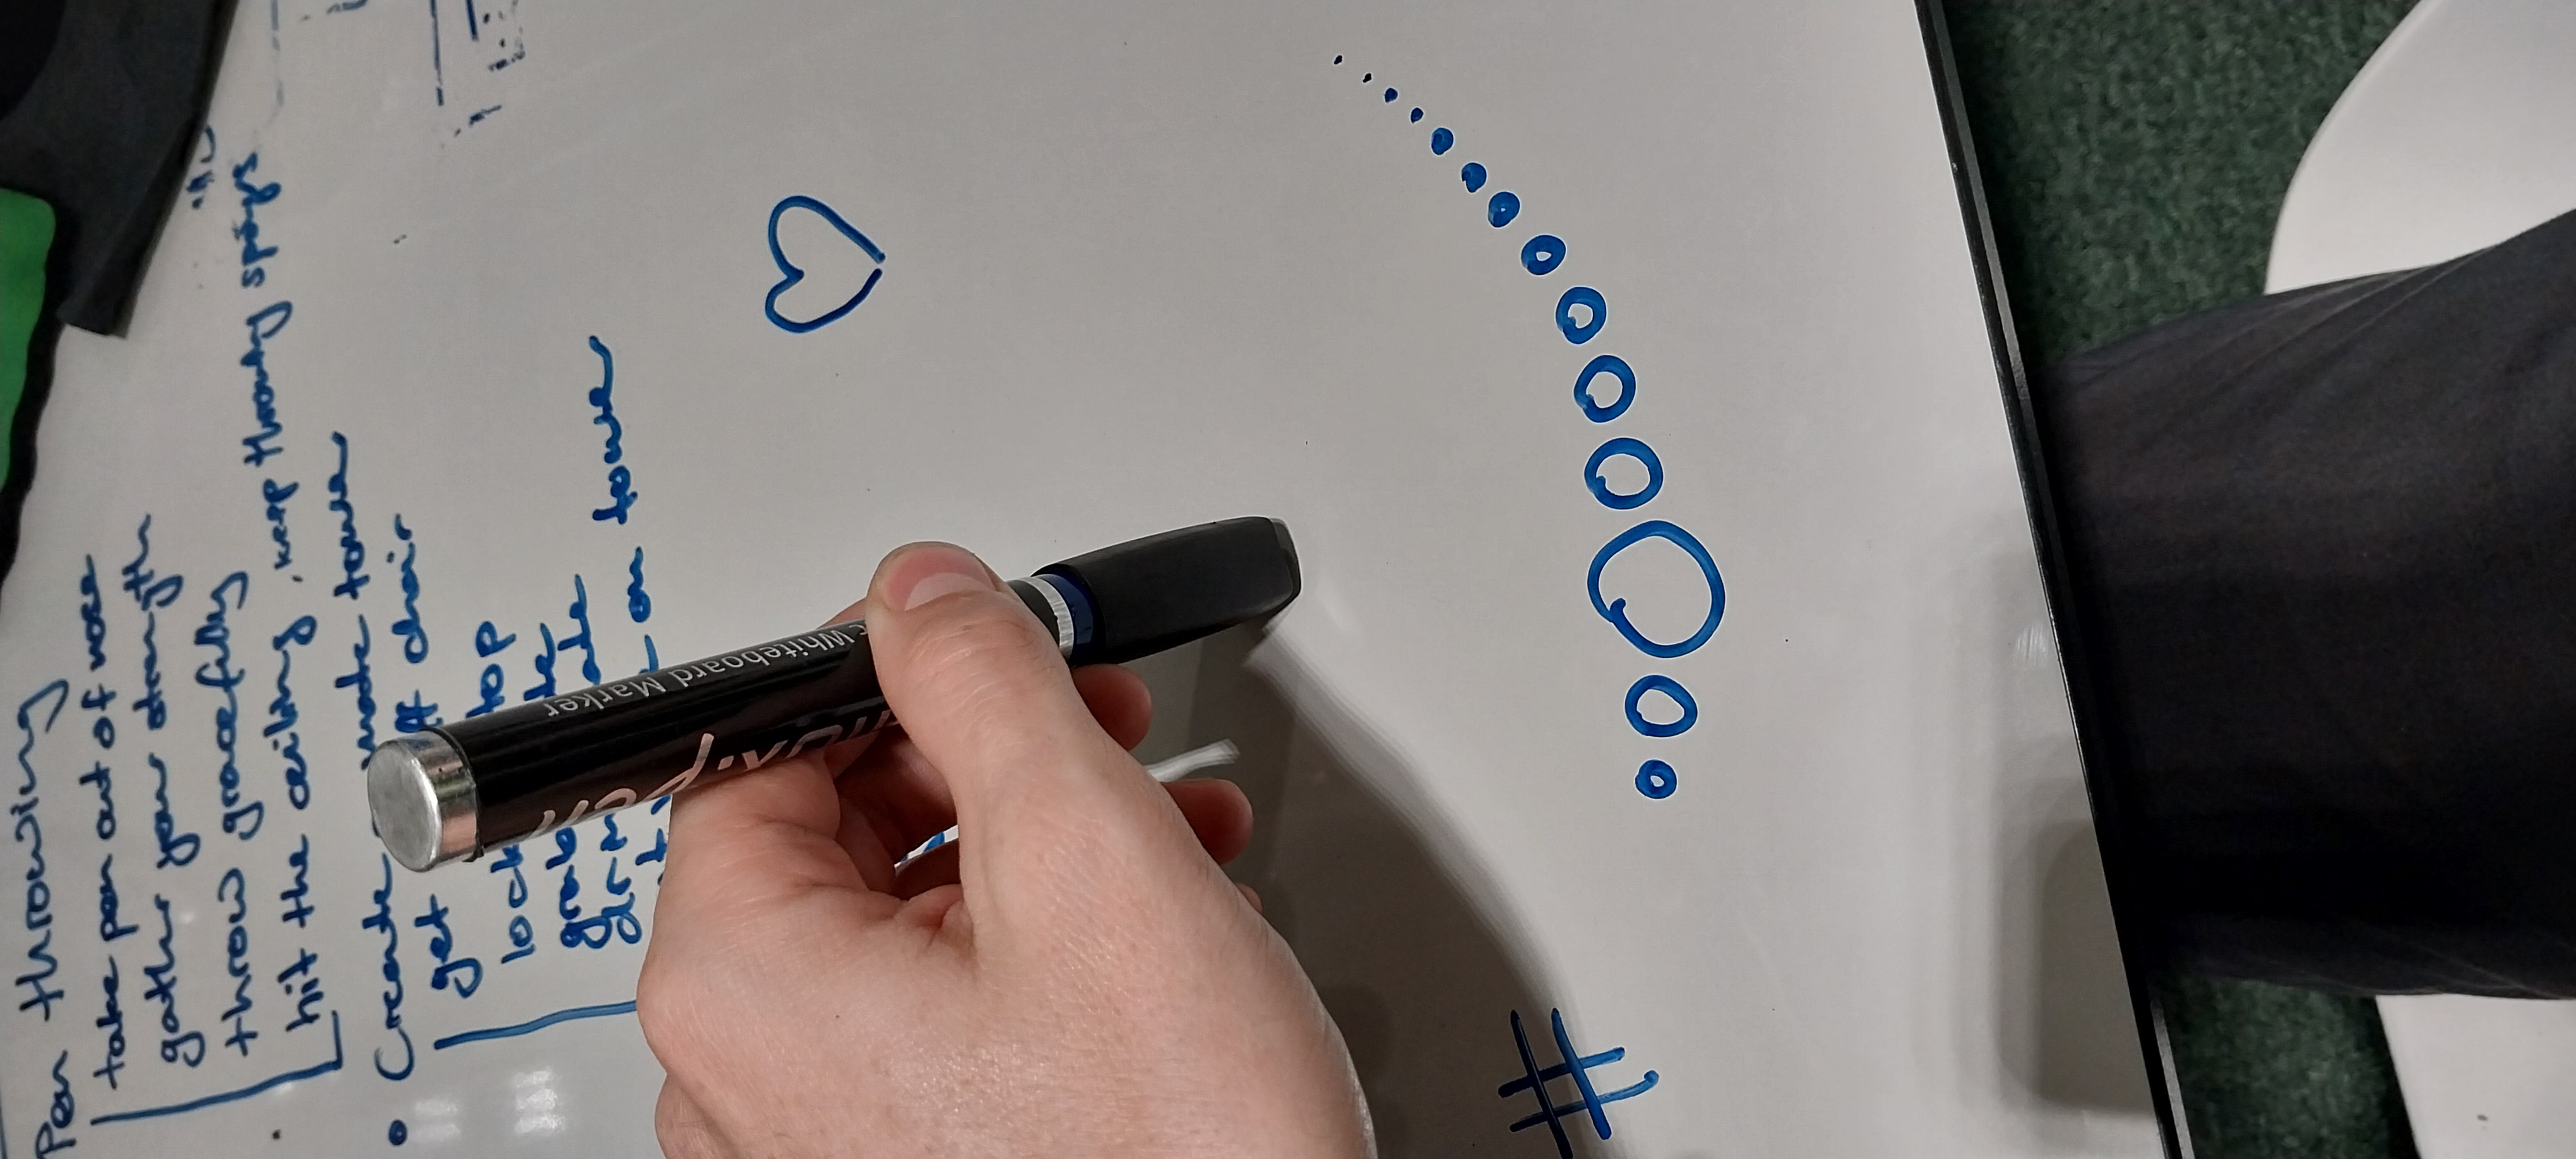 Pen throwing
take pen out of nose
gather your strength
throw gracefully
hit the ceiling, keep throwing
• Create mate tower
get ff chair
lock top
grab
drink
on tower
Whiteboard Marker
#